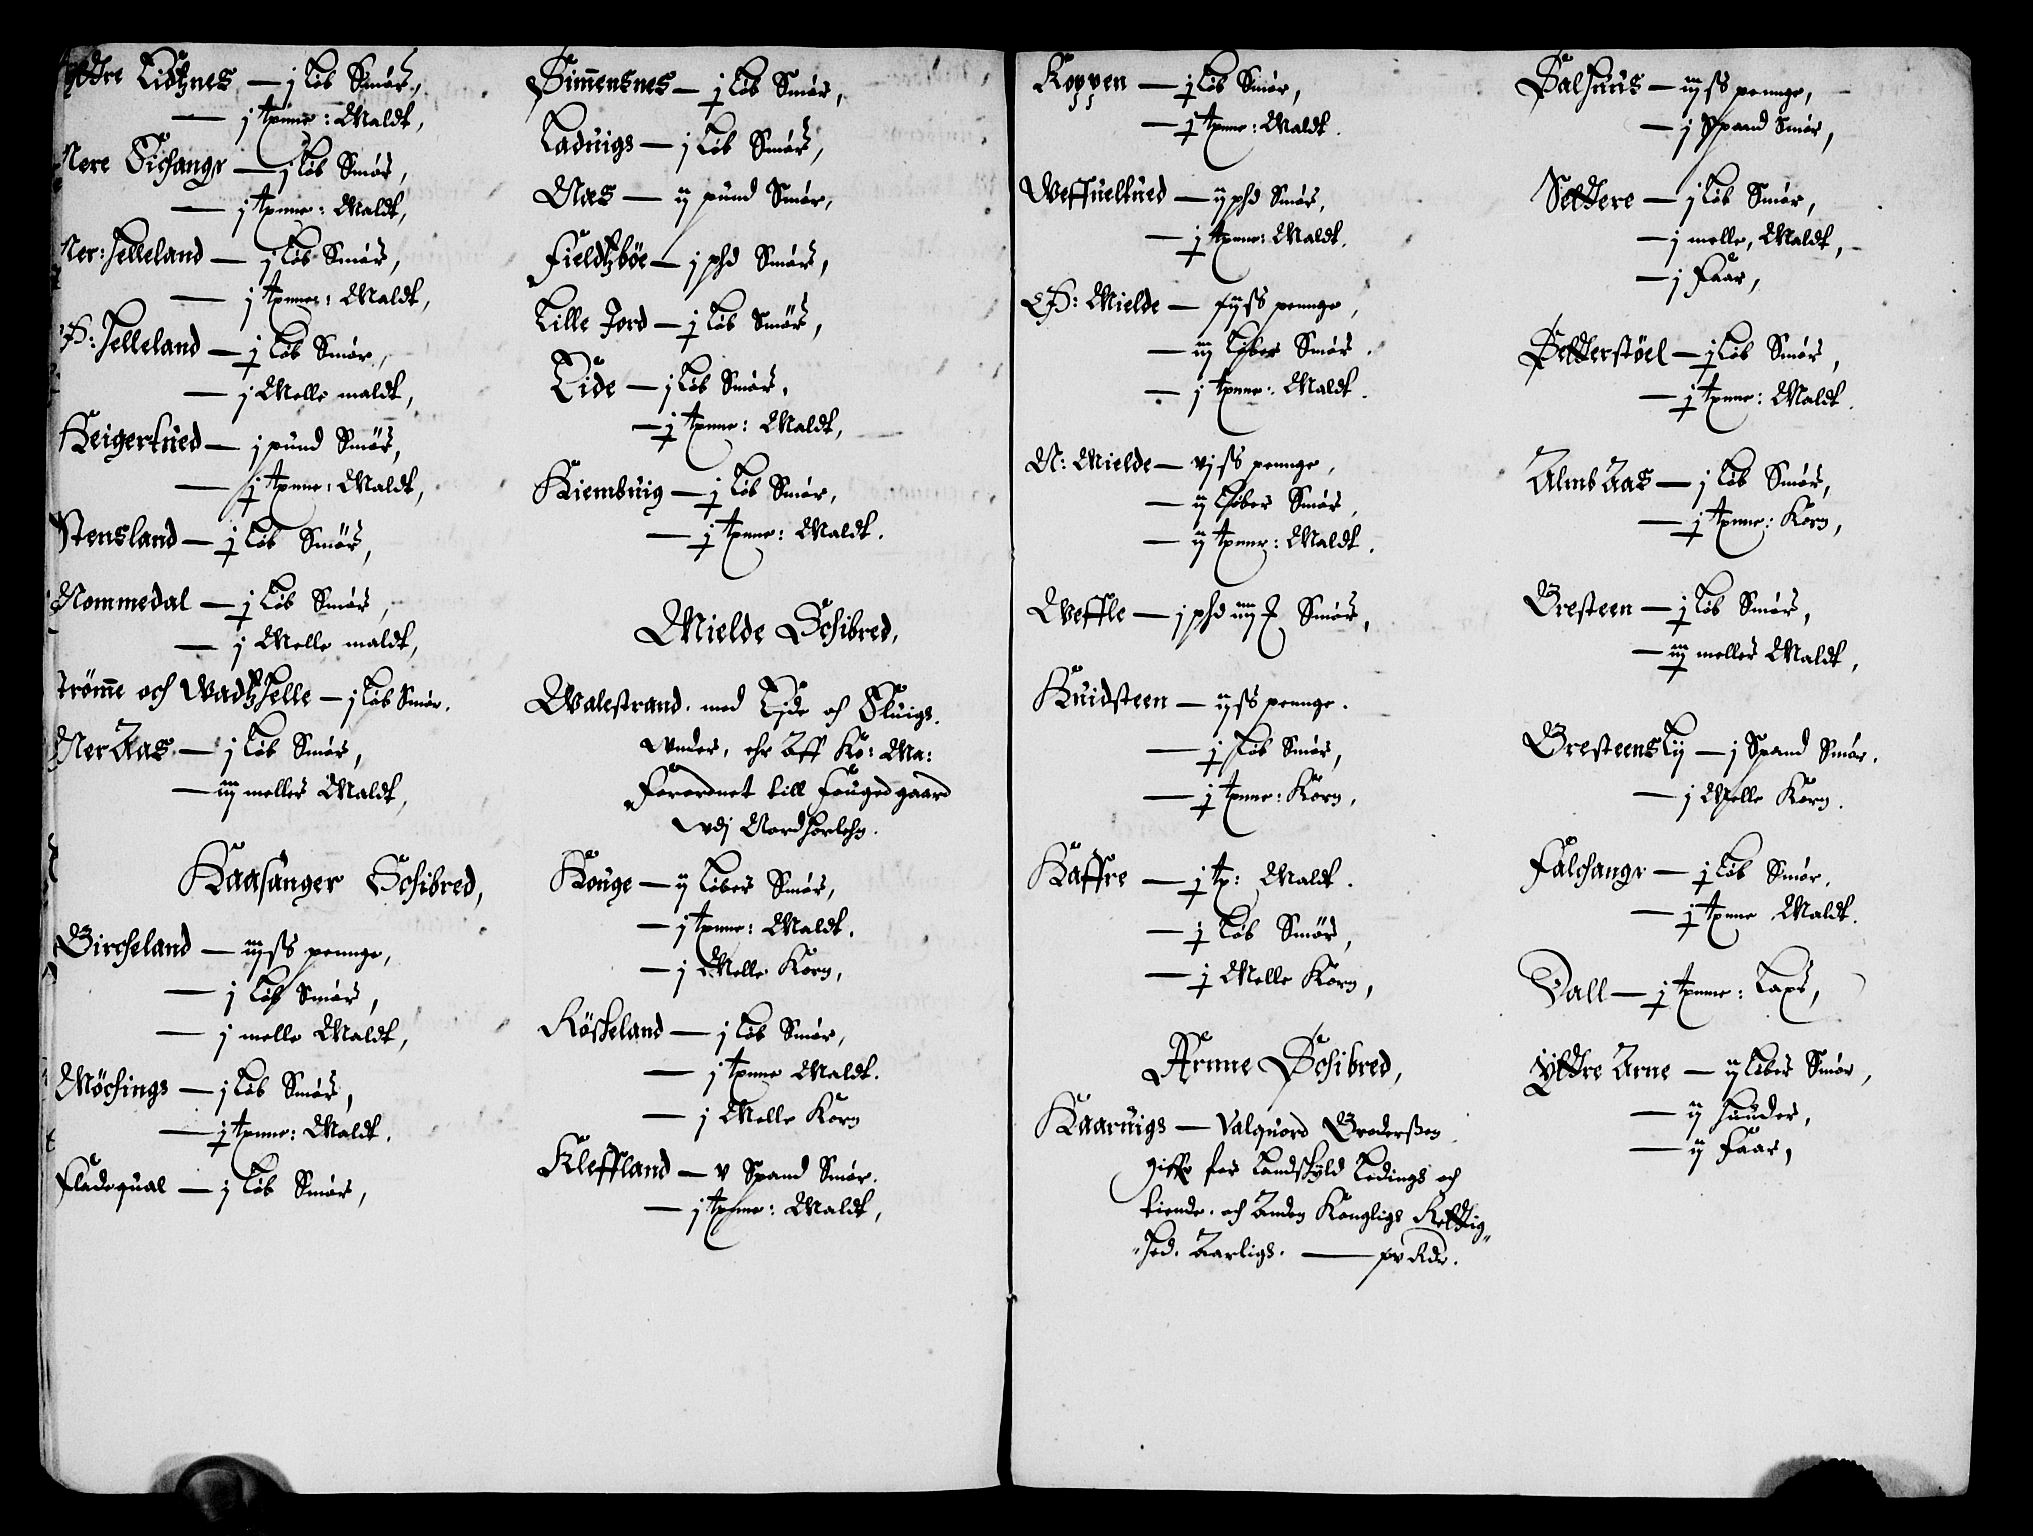 Yttre Tidtznes — j Løb Smør,
— j tpnne: Maldt,
Nere Eichangr — j Løb Smør,
— j tpnne: Maldt,
Ner: Helleland — j Løb Smør,
— j tpnner: Maldt,
Ø: Helleland — j Løb Smør,
— j Melle maldt,
Heigertued — j pund Smør,
— j tpnne: Maldt,
Stensland — j Løb Smør,
Nommedal — j Løb Smør,
— j Melle maldt,
Strøme och Wadtzhelle — j Løb Smør.
Ner Aas — j Løb Smør,
— iiij meller Maldt,
Haahanger Schibred,
Bircheland — iiij ss pennge,
— j Løb Smør,
— j melle Maldt,
Möchings — j Løb Smør,
— j tpnne: Maldt.
Fladequal — j Løb Smør,
Simensnes — j Løb Smør,
Laduigs — j Løb Smør,
Næs — ij pund Smør,
Fieldtzbøe — j phd Smør,
Lille Jord — j Løb Smør,
Eide — j Løb Smør,
— j tpnne: Maldt,
Hiembuig — j Løb Smør,
— j tpnne: Maldt.
Mielde Schibred,
Walestrand. med Eide och Sluigs.
wnder, ehr Aff Ko: Ma:
Forordnet till fougedgaard
wdj Nordhorlehn.
Houge — ij Løber Smør,
— j tpnne: Maldt.
— j Melle Korn,
Röskeland — j Løb Smør,
— j tpnne Maldt.
— j Melle Korn
Kleffland — v Spand Smør.
— j tpnne: Maldt,
Koppen — j Løb Smør,
— j tpnne: Maldt.
Weffueltued — ij phd Smør,
— j tpnne: Maldt.
Ø: Mielde — xij ss pennge,
— iij Løber Smør.
— j tpnne: Maldt.
N: Mielde — vj ss pennge,
— ij Løber Smør,
— ij tpnne: Maldt.
Weffle — j phd iiij Smør,
Huidsteen — ij ss pennge.
— j Løb Smør,
— j tpnne: Korn,
Haffre — j tp: Maldt.
— j Løb Smør,
— j Melle Korn,
Arnne Schibred,
Haaruigs — Valquord Broderssen
giffr for Landskyld Ledings och
tiende. och Anden Kongligs Rettig„
„hed. Aarligs. — xv Rdr.
Salhuus — iij ss pennge,
— j Spand Smør,
Settere — j Løb Smør,
— j melle, Maldt,
— j Faar,
Setterstøel — j Løb Smør,
— j tpnne: Maldt.
Almb Aas — j Løb Smør,
— j tpnne: Korn,
Bresteen — j Løb Smør,
— iiij meller Maldt,
Bresteens Lij — j Spand Smør.
— j Melle Korn.
Falchangr — j Løb Smør.
— j tpnne Maldt.
Dall — j tpnne: Laxs,
Yttre Arne — ij Løber Smør,
— ij huuder,
— ij Faar,